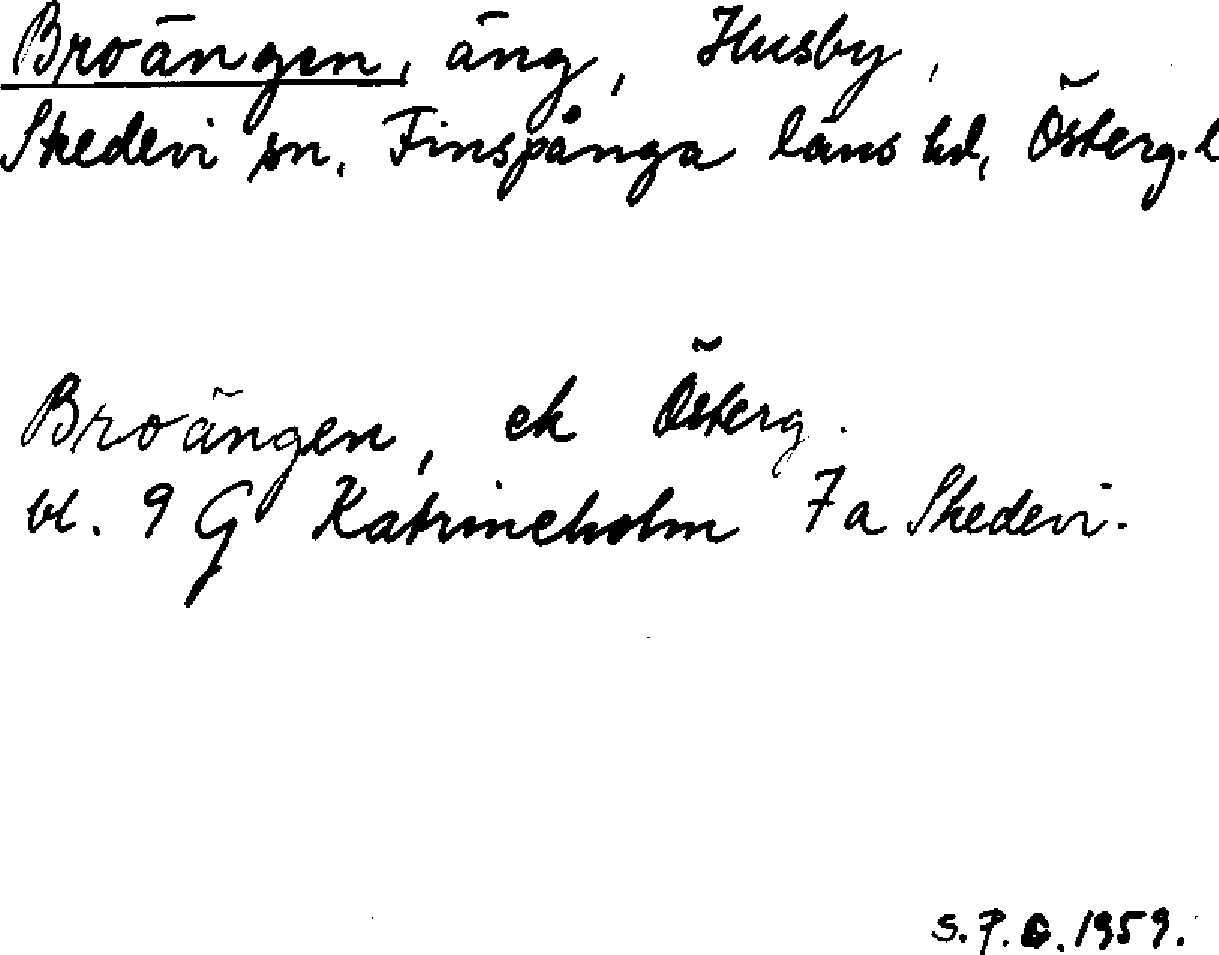 Broängen, äng, Husby,
Skedevi sn, Finspånga läns hd, Österg. l
Broängen, ek Österg.
bl. 9 G Katrineholm 7 a Skedevi.
S. P. G. 1959.